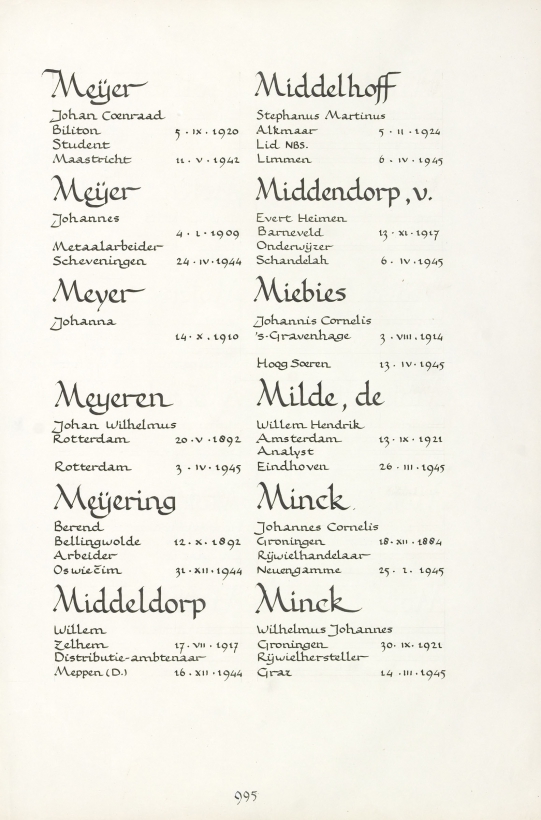 Meijer
Johan Coenraad
Biliton 5 · IX · 1920
Student
Maastricht 11 · V · 1942
Meijer
Johannes
4 · I · 1909
Metaalarbeider
Scheveningen 24 · IV · 1944
Meyer
Johanna
14 · X · 1910
Meyeren
Johan Wilhelmus
Rotterdam 20 · V · 1892
Rotterdam 3 · IV · 1945
Meijering
Berend
Bellingwolde 12 · X · 1892
Arbeider
Oswiečim 31 · XII · 1944
Middeldorp
Willem
Zelhem 17 · VII · 1917
Distributie-ambtenaar
Meppen (D.) 16 · XII · 1944
Middelhoff
Stephanus Martinus
Alkmaar 5 · II · 1924
Lid NBS.
Limmen 6 · IV · 1945
Middendorp, v.
Evert Heimen
Barneveld 13 · XI · 1917
Onderwijzer
Schandelah 6 · IV · 1945
Miebies
Johannis Cornelis
's-Gravenhage 3 · VIII · 1914
Hoog Soeren 13 · IV · 1945
Milde, de
Willem Hendrik
Amsterdam 13 · IX · 1921
Analyst
Eindhoven 26 · III · 1945
Minck
Johannes Cornelis
Groningen 18 · XII · 1884
Rijwielhandelaar
Neuengamme 25 · I · 1945
Minck
Wilhelmus Johannes
Groningen 30 · IX · 1921
Rijwielhersteller
Graz 14 · III · 1945
995